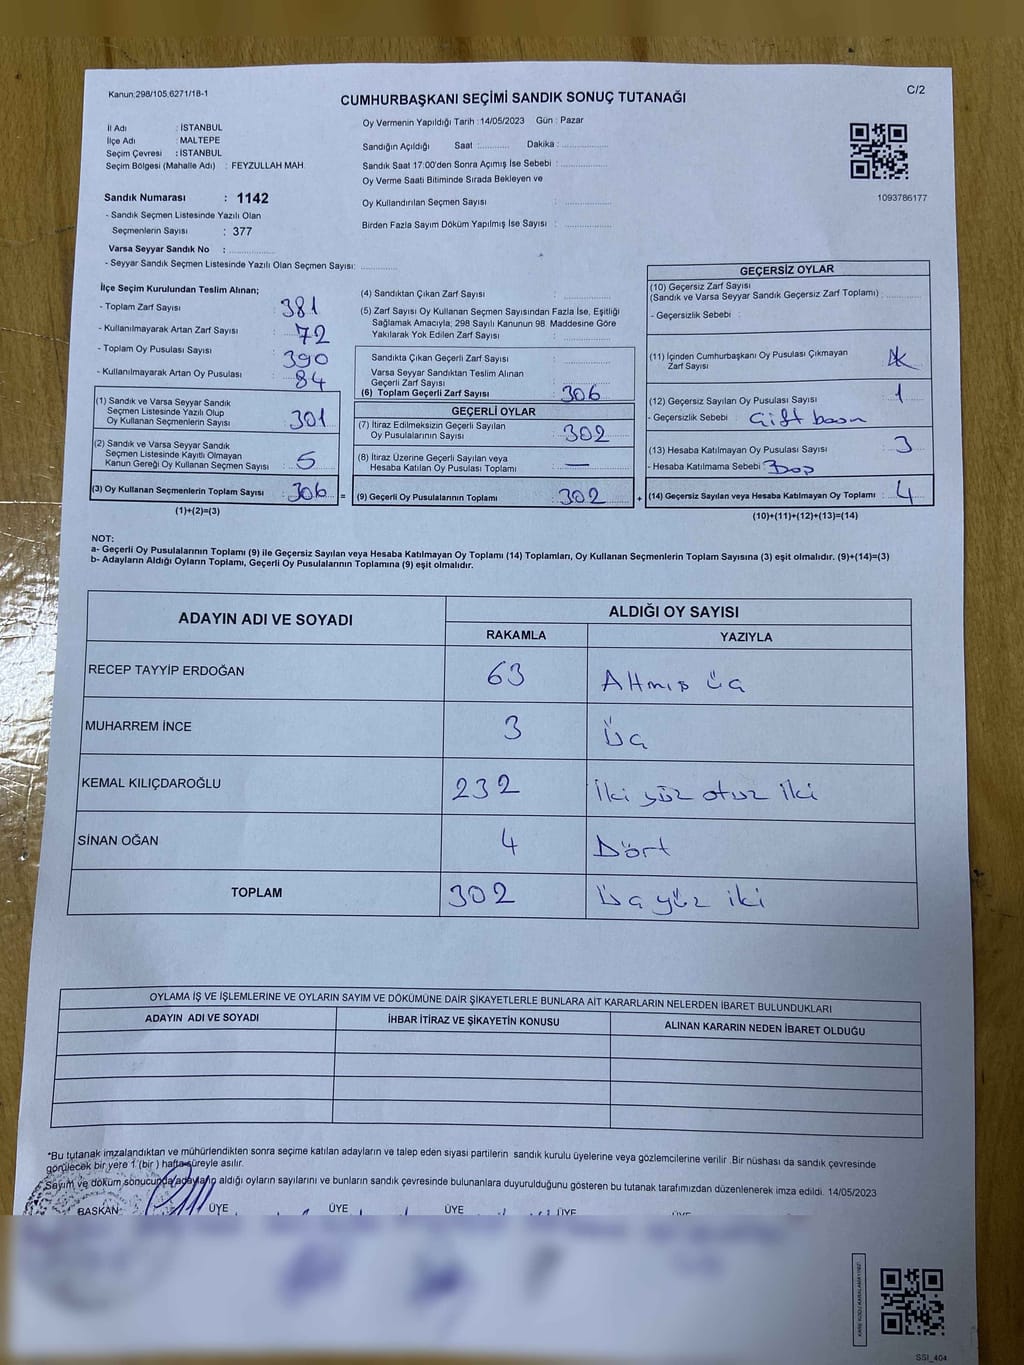 Kanun:298/105,6271/18-1
C/2
CUMHURBAŞKANI SEÇİMİ SANDIK SONUÇ TUTANAĞI
İl Adı : İSTANBUL
İlçe Adı : MALTEPE
Seçim Çevresi : İSTANBUL
Seçim Bölgesi (Mahalle Adı) : FEYZULLAH MAH.
Sandık Numarası : 1142
- Sandık Seçmen Listesinde Yazılı Olan
Seçmenlerin Sayısı : 377
Varsa Seyyar Sandık No : ..............
- Seyyar Sandık Seçmen Listesinde Yazılı Olan Seçmen Sayısı: ............
Oy Vermenin Yapıldığı Tarih : 14/05/2023 Gün : Pazar
Sandığın Açıldığı Saat :.......... Dakika : ...............
Sandık Saat 17:00'den Sonra Açımış İse Sebebi : ...............
Oy Verme Saati Bitiminde Sırada Bekleyen ve
Oy Kullandırılan Seçmen Sayısı : ...............
Birden Fazla Sayım Döküm Yapılmış İse Sayısı : ...............
1093786177
İlçe Seçim Kurulundan Teslim Alınan;
- Toplam Zarf Sayısı : 381
- Kullanılmayarak Artan Zarf Sayısı : 72
- Toplam Oy Pusulası Sayısı : 390
- Kullanılmayarak Artan Oy Pusulası : 84
(1) Sandık ve Varsa Seyyar Sandık
Seçmen Listesinde Yazılı Olup
Oy Kullanan Seçmenlerin Sayısı : 301
(2) Sandık ve Varsa Seyyar Sandık
Seçmen Listesinde Kayıtlı Olmayan
Kanun Gereği Oy Kullanan Seçmen Sayısı : 5
(3) Oy Kullanan Seçmenlerin Toplam Sayısı : 306 =
(1)+(2)=(3)
(4) Sandıktan Çıkan Zarf Sayısı : ...............
(5) Zarf Sayısı Oy Kullanan Seçmen Sayısından Fazla İse, Eşitliği
Sağlamak Amacıyla; 298 Sayılı Kanunun 98. Maddesine Göre
Yakılarak Yok Edilen Zarf Sayısı : ...............
Sandıkta Çıkan Geçerli Zarf Sayısı : ...............
Varsa Seyyar Sandıktan Teslim Alınan
Geçerli Zarf Sayısı : ...............
(6) Toplam Geçerli Zarf Sayısı : 306
GEÇERLİ OYLAR
(7) İtiraz Edilmeksizin Geçerli Sayılan
Oy Pusulalarının Sayısı : 302
(8) İtiraz Üzerine Geçerli Sayılan veya
Hesaba Katılan Oy Pusulası Toplamı : —
(9) Geçerli Oy Pusulalarının Toplamı : 302 +
GEÇERSİZ OYLAR
(10) Geçersiz Zarf Sayısı
(Sandık ve Varsa Seyyar Sandık Geçersiz Zarf Toplamı) : ............
- Geçersizlik Sebebi :
(11) İçinden Cumhurbaşkanı Oy Pusulası Çıkmayan
Zarf Sayısı
(12) Geçersiz Sayılan Oy Pusulası Sayısı : 1
- Geçersizlik Sebebi : Çift basın
(13) Hesaba Katılmayan Oy Pusulası Sayısı : 3
- Hesaba Katılmama Sebebi : Boş
(14) Geçersiz Sayılan veya Hesaba Katılmayan Oy Toplamı : 4
(10)+(11)+(12)+(13)=(14)
NOT:
a- Geçerli Oy Pusulalarının Toplamı (9) ile Geçersiz Sayılan veya Hesaba Katılmayan Oy Toplamı (14) Toplamları, Oy Kullanan Seçmenlerin Toplam Sayısına (3) eşit olmalıdır. (9)+(14)=(3)
b- Adayların Aldığı Oyların Toplamı, Geçerli Oy Pusulalarının Toplamına (9) eşit olmalıdır.
ADAYIN ADI VE SOYADI ALDIĞI OY SAYISI
RAKAMLA YAZIYLA
RECEP TAYYİP ERDOĞAN 63 Altmış üç
MUHARREM İNCE 3 Üç
KEMAL KILIÇDAROĞLU 232 İki yüz otuz iki
SİNAN OĞAN 4 Dört
TOPLAM 302 Üç yüz iki
OYLAMA İŞ VE İŞLEMLERİNE VE OYLARIN SAYIM VE DÖKÜMÜNE DAİR ŞİKAYETLERLE BUNLARA AİT KARARLARIN NELERDEN İBARET BULUNDUKLARI
ADAYIN ADI VE SOYADI İHBAR İTİRAZ VE ŞİKAYETİN KONUSU ALINAN KARARIN NEDEN İBARET OLDUĞU
*Bu tutanak imzalandıktan ve mühürlendikten sonra seçime katılan adayların ve talep eden siyasi partilerin sandık kurulu üyelerine veya gözlemcilerine verilir .Bir nüshası da sandık çevresinde
görülecek bir yere 1 (bir ) hafta süreyle asılır.
Sayım ve döküm sonucunda adayların aldığı oyların sayılarını ve bunların sandık çevresinde bulunanlara duyurulduğunu gösteren bu tutanak tarafımızdan düzenlenerek imza edildi. 14/05/2023
BAŞKAN ÜYE ÜYE ÜYE ÜYE ÜYE
SSI_404